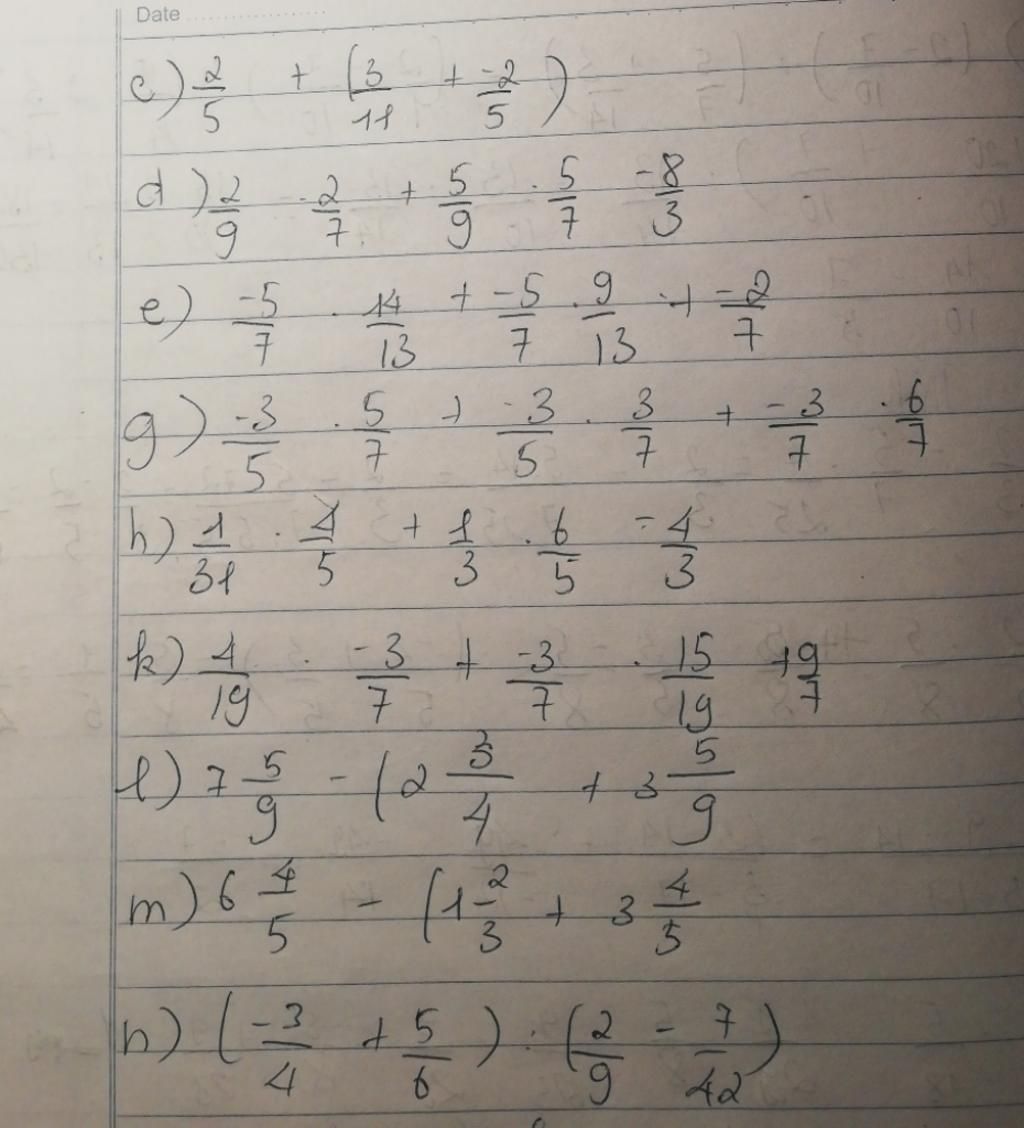 Date
c) 2/5 + (3/11 + -2/5)
d) 2/9 . 2/7 + 5/9 . 5/7 -8/3
e) -5/7 . 14/13 + -5/7 . 9/13 + -2/7
g) -3/5 . 5/7 + -3/5 . 3/7 + -3/7 . 6/7
h) 1/31 . 4/5 + 1/3 . 6/5 - 4/3
k) 4/19 . -3/7 + -3/7 . 15/19 + 9/7
l) 7 5/9 - (2 3/4 + 3 5/9
m) 6 4/5 - (1 2/3 + 3 4/5
n) (-3/4 + 5/6) : (2/9 - 7/42)